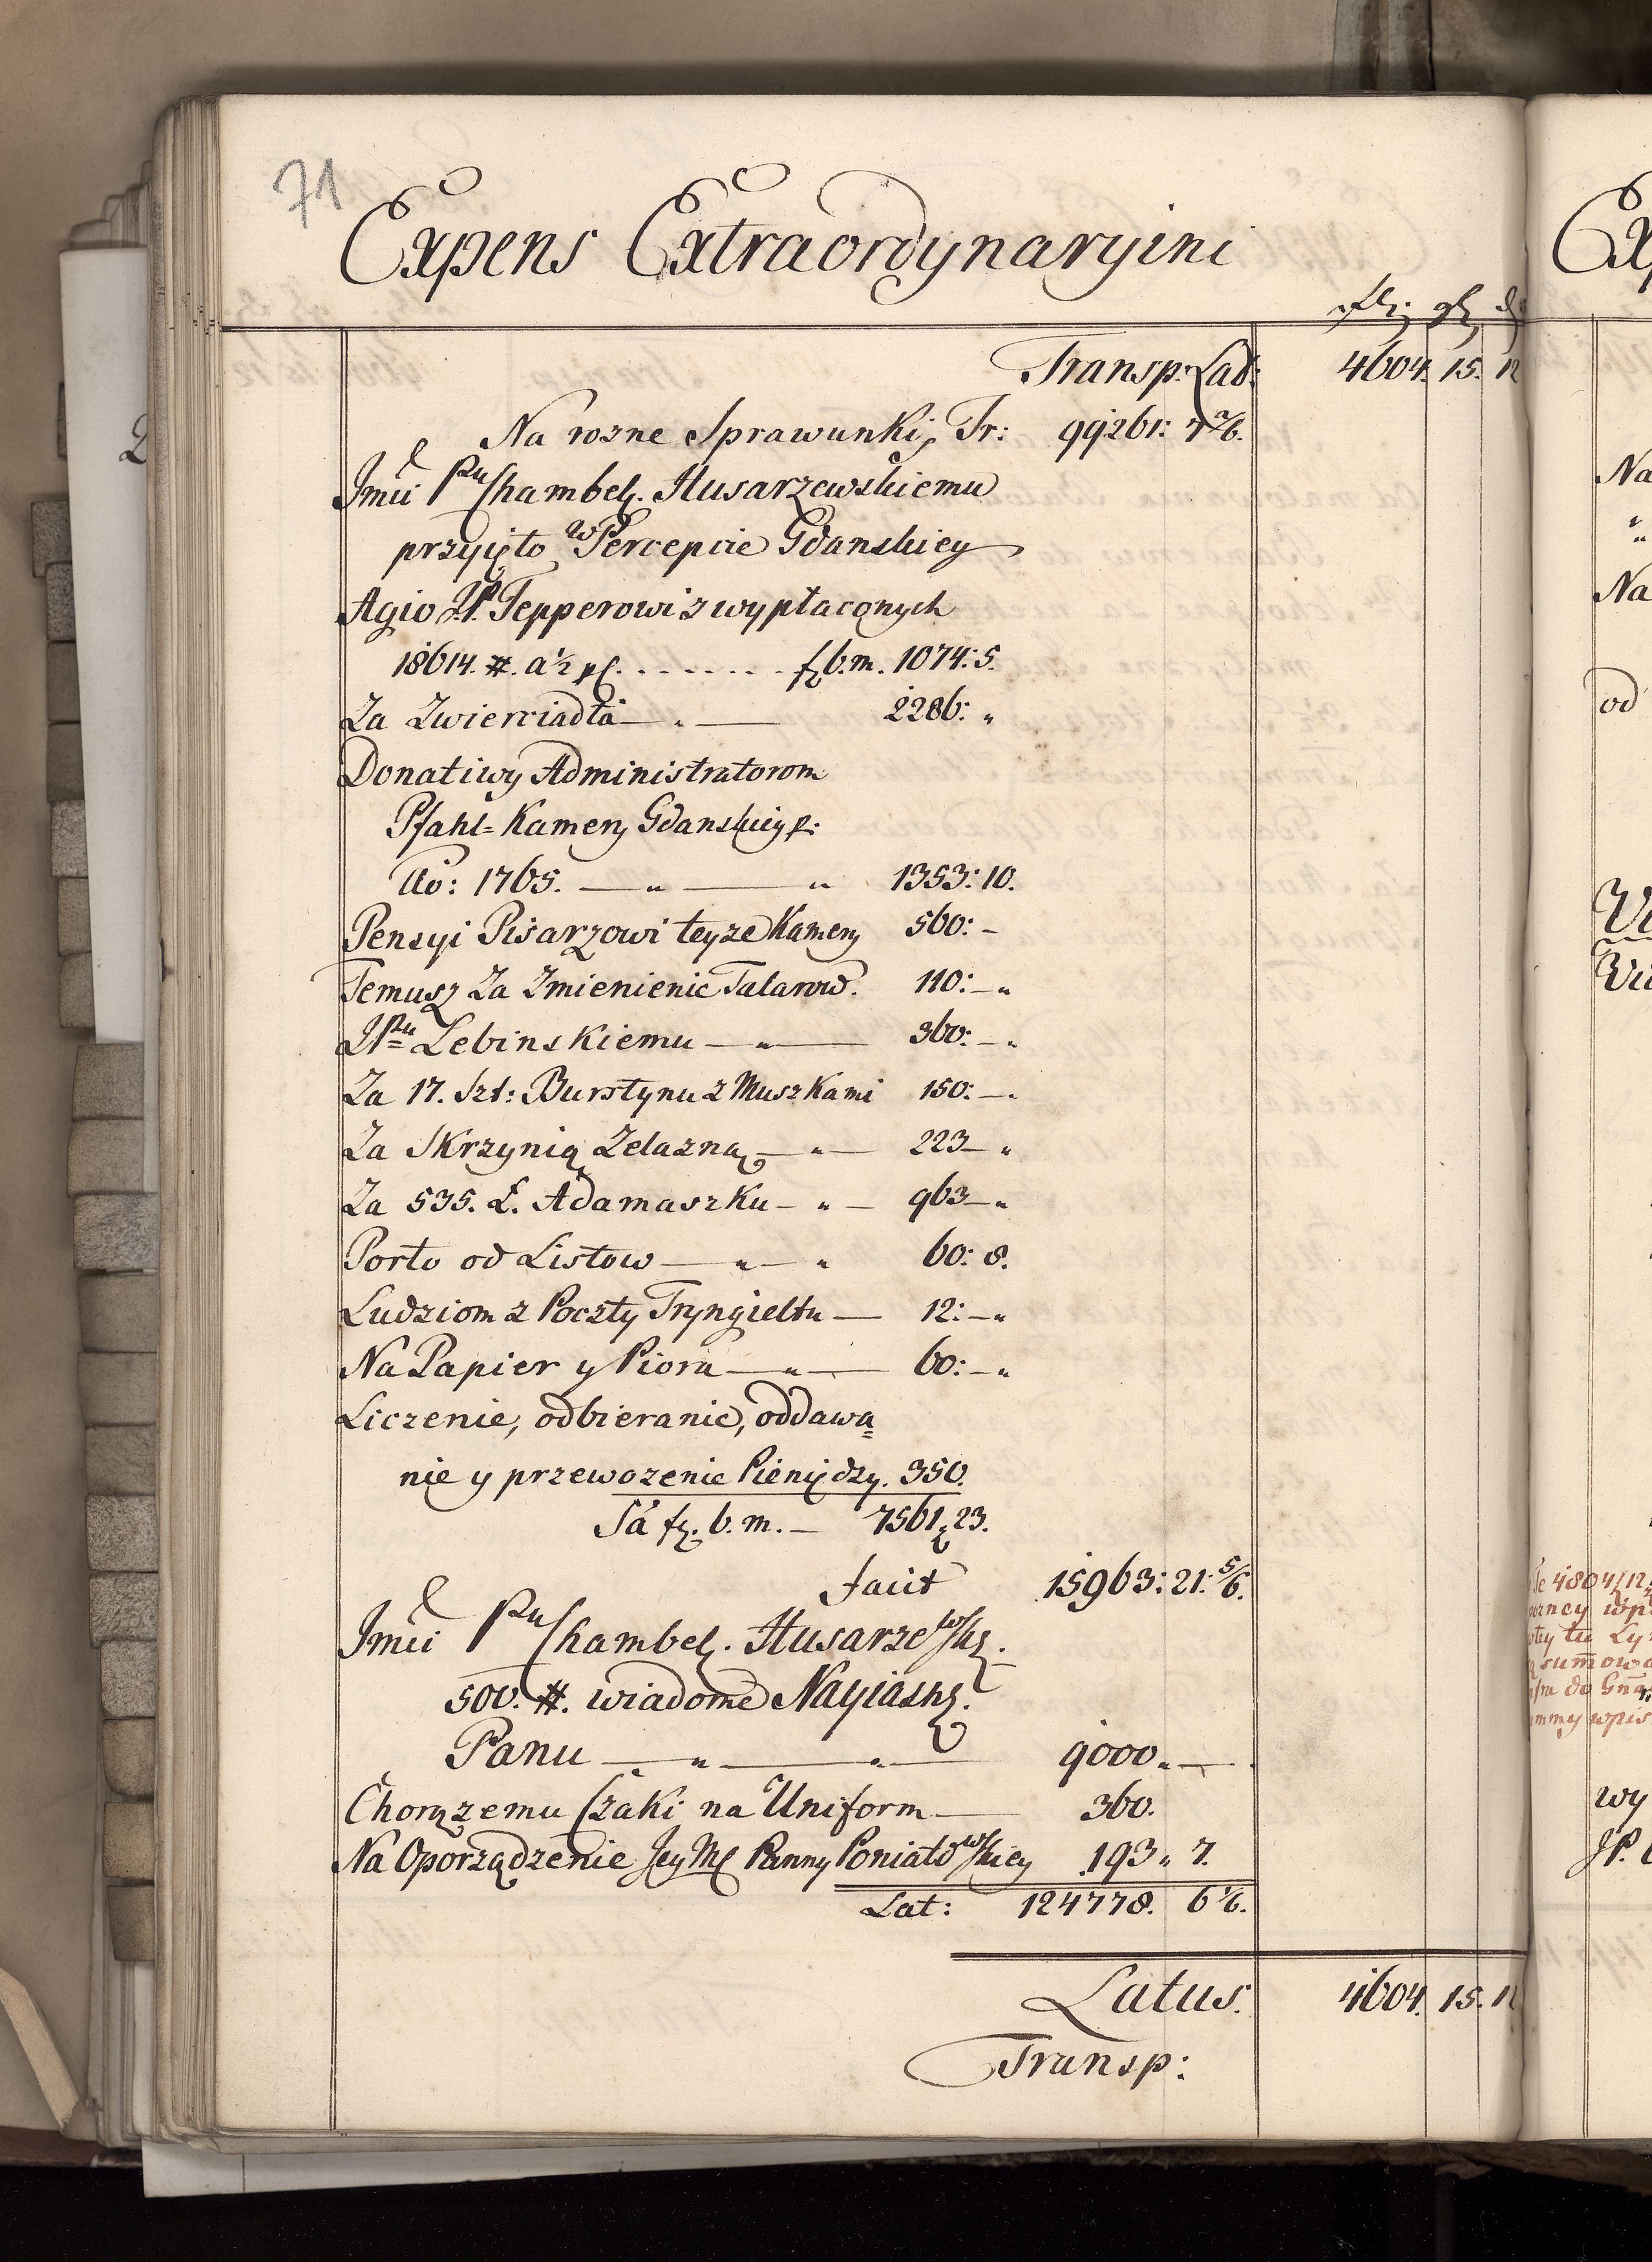 71
Expens Extraordynaryini
Transp: Lad: 4604. 15. 12
Na rozne Sprawunki, Tr: 99261: 7 2/6.
Jmci Pnu Chambel. Husarzewskiemu
przyięto w Percepcie Gdanskiey
Agio JP. Tepperowi z wypłaconych
18614. #. a ½ pC. . . . . . . . . f b. m. 1074: 5.
Za Zwierciadła — „ — 2286: „
Donatiwy Administratorom
Pfahl= Kamery Gdanskiey p:
Ao: 1765. — „ — „ 1353: 10.
Pensyi Pisarzowi teyze Kamery 560: –
Temusz Za Zmienienie Talarow. 110: – „
JPnu Lebinskiemu — „ — 360: – „
Za 17. Szt: Bursztynu z Muszkami 150: – .
Za Skrzynią Zelazną — „ — 223 – „
Za 535. Ł. Adamaszku – „ – 963 – „
Porto od Listow — „ – „ 60: 8.
Ludziom z Poczty Tryngieltu — 12: – „
Na Papier y Piora — „ — 60: – „
Liczenie, odbieranie, oddawa=
nie y przewozenie Pieniędzy. 350.
Sa f. b. m. – 7561 „ 23.
facit 15963: 21: 5/6.
Jmci Pnu Chambel. Husarzewsk.
500. #. wiadome Nayiasn.
Panu — „ — „ — 9000 „ —
Chorązemu Czaki na Uniform — 360.
Na Oporządzenie Jey Mc Panny Poniatowskiey 193 „ 7.
Lat: 124778. 6 1/6.
Latus. 4604. 15. 12
Transp: